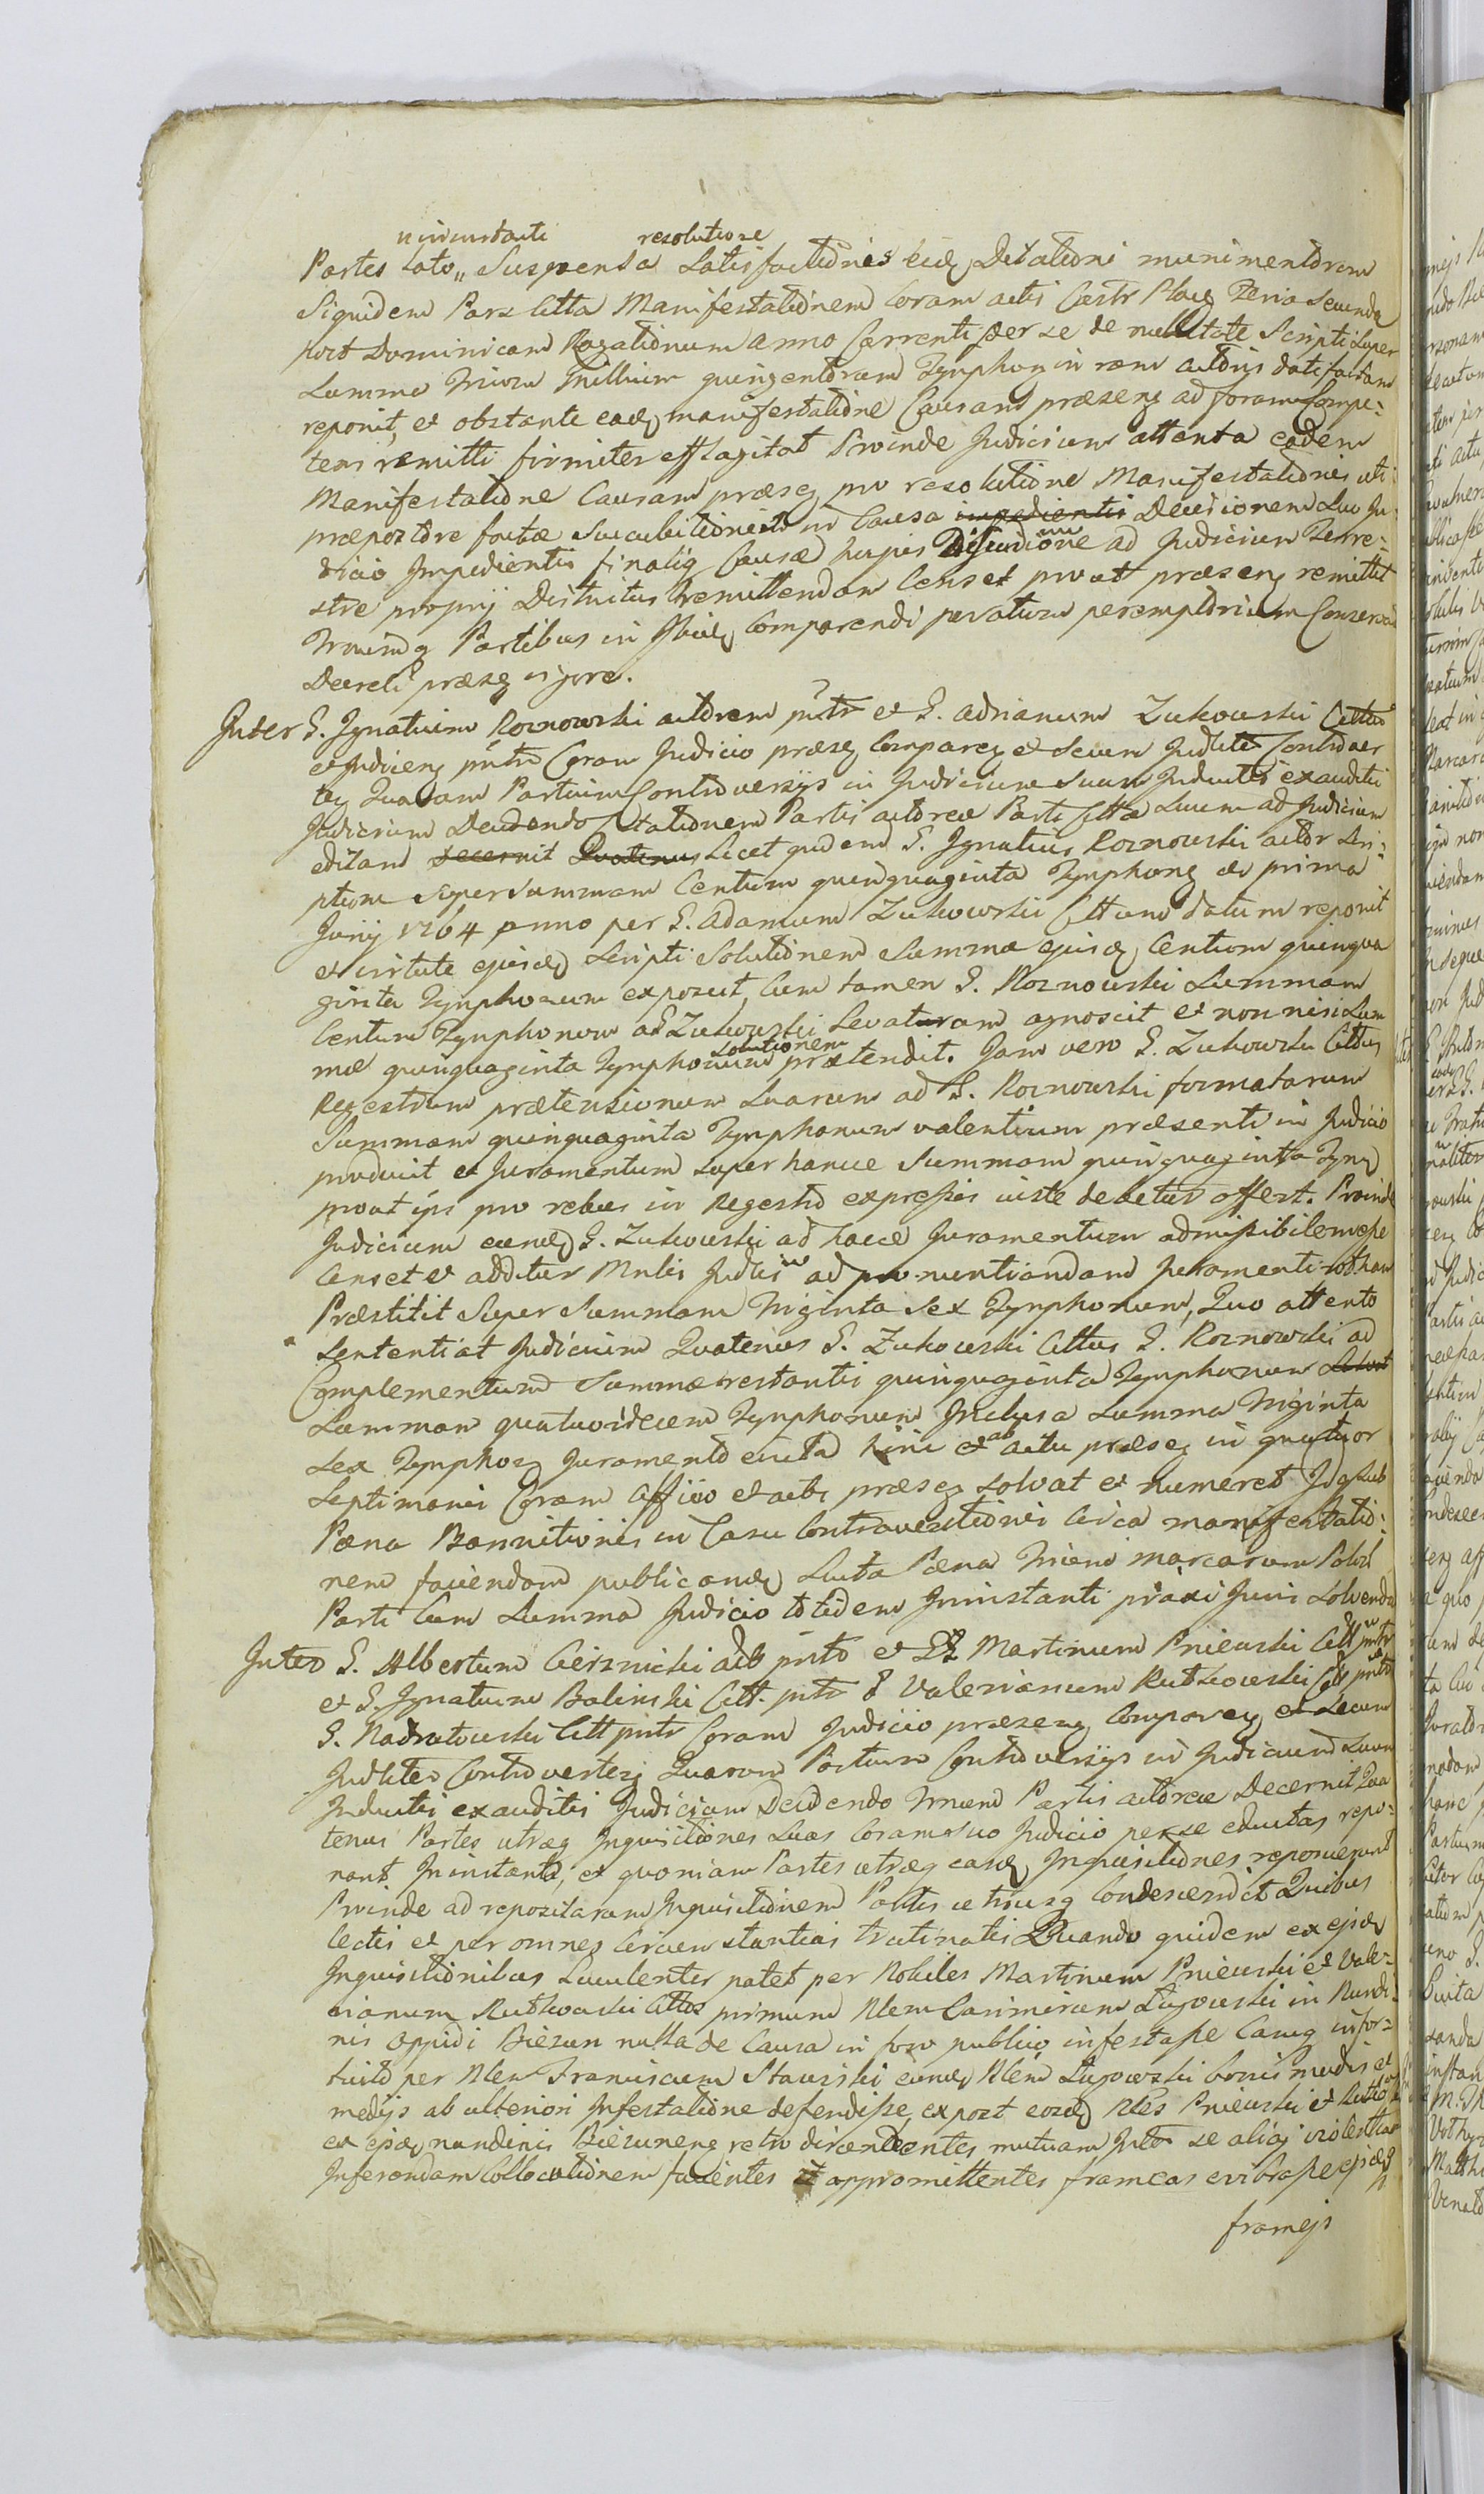 resolutione
Partes Lato,, Suspensa Satisfactionis Citationi munimentorum
Siquidem Pars Citta Manifestationem Coram actis Castr Feria Secunda
post Dominicam Rogationum anno Currenti per se de nullitate Scripti Super
Summa Trium Millium quingentorum Tynphon in rem actoris dati factam
reponit, et obstante eadem manifestatione Causam præsen ad forum Compe:
tens remitti firmiter efflagitat Proinde Judicium attenta eadem
Manifestatione Causam præsen pro resolutione Manifestationis uti
in Causa impedientis Decisionem Suo Ju:
dicio Impedientis finalig Causæ hujus ad Judicium Terre:
stre proprij Districtus remittendam Censet prout præsen remittit
Partibus in Comparendi peremptorium Conservat
Decreti præsen vigore.
Inter G. Ignatium Roznowski actorem et G. Adrianum Zukowski Cittum
et Coram Judicio præsen Comparen et Secum Judlite Controver
ten Quarum Partium Controversijs in Judicium Suum Inductis exauditis
Judicium Decidendo Citationem Partis actoreæ Parti Cittæ Suum ad Judicium
editam decernit Quatenus Licet quidem G. Ignatius Roznowski actor Scri:
ptum Super Summam Centum quinquaginta Tynphon de prima
Junij 1764 anno per G. Adamum Zukowski Cittum datum reponit
et virtute ejusd Scripti Solutionem Summæ ejusd Centum quinqua
ginta Tynphonum exposcit, Cum tamen G. Roznowski Summam
Centum Tynphonum a G Zukowski Levatam agnoscit et non nisi Sum
mæ quinquaginta Tynphonum solutionem prætendit. Jam vero G. Zukowski Cittus
Regestrum prætensionum Suarum ad G. Roznowski formatarum
Summam quinquaginta Tynphonum valentium præsenti in Judicio
producit et Juramentum super hance Summam quinquaginta Tynp
prout ipsi pro rebus in Regestro expressis iuste debetur offert. Proinde
Judicium eund G. Zukowski ad hocce Juramentum admissibilem esse
Censet et additur ad pronuntiandam Juramenti rotham
Præstitit Super Summam Triginta Sex Tynphonum, Quo attento
Sententiat Judicium Quatenus G. Zukowski Cittus G. Roznowski ad
Complementum Summæ restantis quinquaginta Tynphonum Solvat
Summam quatuordecem Tynphonum Inclusa Summa Triginta
Sex Tynphon Juramento evicta hinc et ab actu præsen in quatuor
Septimanis Coram Officio et actis præsen Solvat et numeret Idq Sub
Pæna Bannitionis in Casu Contraventionis Circa manifestatio:
nem faciendam publicand Luita Pæna Trium marcarum Polol
Parti Cum Summa Judicio totidem Ininstanti praxi Juris Solvenda
Inter G. Albertum Ciesznicki act et GG Martinum Pniewski Citt
et G. Ignatium Balinski Citt. G Valerianum Rutkowski Citt
G. Nadratowski Citt Coram Judicio præsen Comparen et Secum
Judliter Controverten Quarum Partium Controversijs in Judicium Suum
Inductis exauditis Judicium Decidendo Partis actoreæ Decernit Qua
tenus Partes utræq Inquisitiones Suas Coram Suo Judicio per se eductas repo:
nant Ininstanti, et quoniam Partes utræq easd Inquisitiones reposuerunt
Proinde ad repositarum Inquisitionem Partis utriusq Condescendit Quibus
lectis et per omnes Circumstantias trutinatis Quando quidem ex ejsd
Inquisitionibus Luculenter patet per Nobiles Martinum Pniewski et Vale:
rianum Rutkowski Cittos primum Nlem Casimirum Lugowski in Nundi:
nis Oppidi Biezun nulla de Causa in foro publico infestasse Casuq infor:
tuito per Nlem Franciscum Stawiski eund Nlem Lugowski bonis modis et
medijs ab ulteriori Infestatione defendisse, ex post eosd Nles Pniewski et Rutko
ex ejsd nundinis Biezunen retro mutuam Inter se aliaj
Inferendam Collocutionem facientes et appromittentes frameas evibrasse ejsdq
framejs